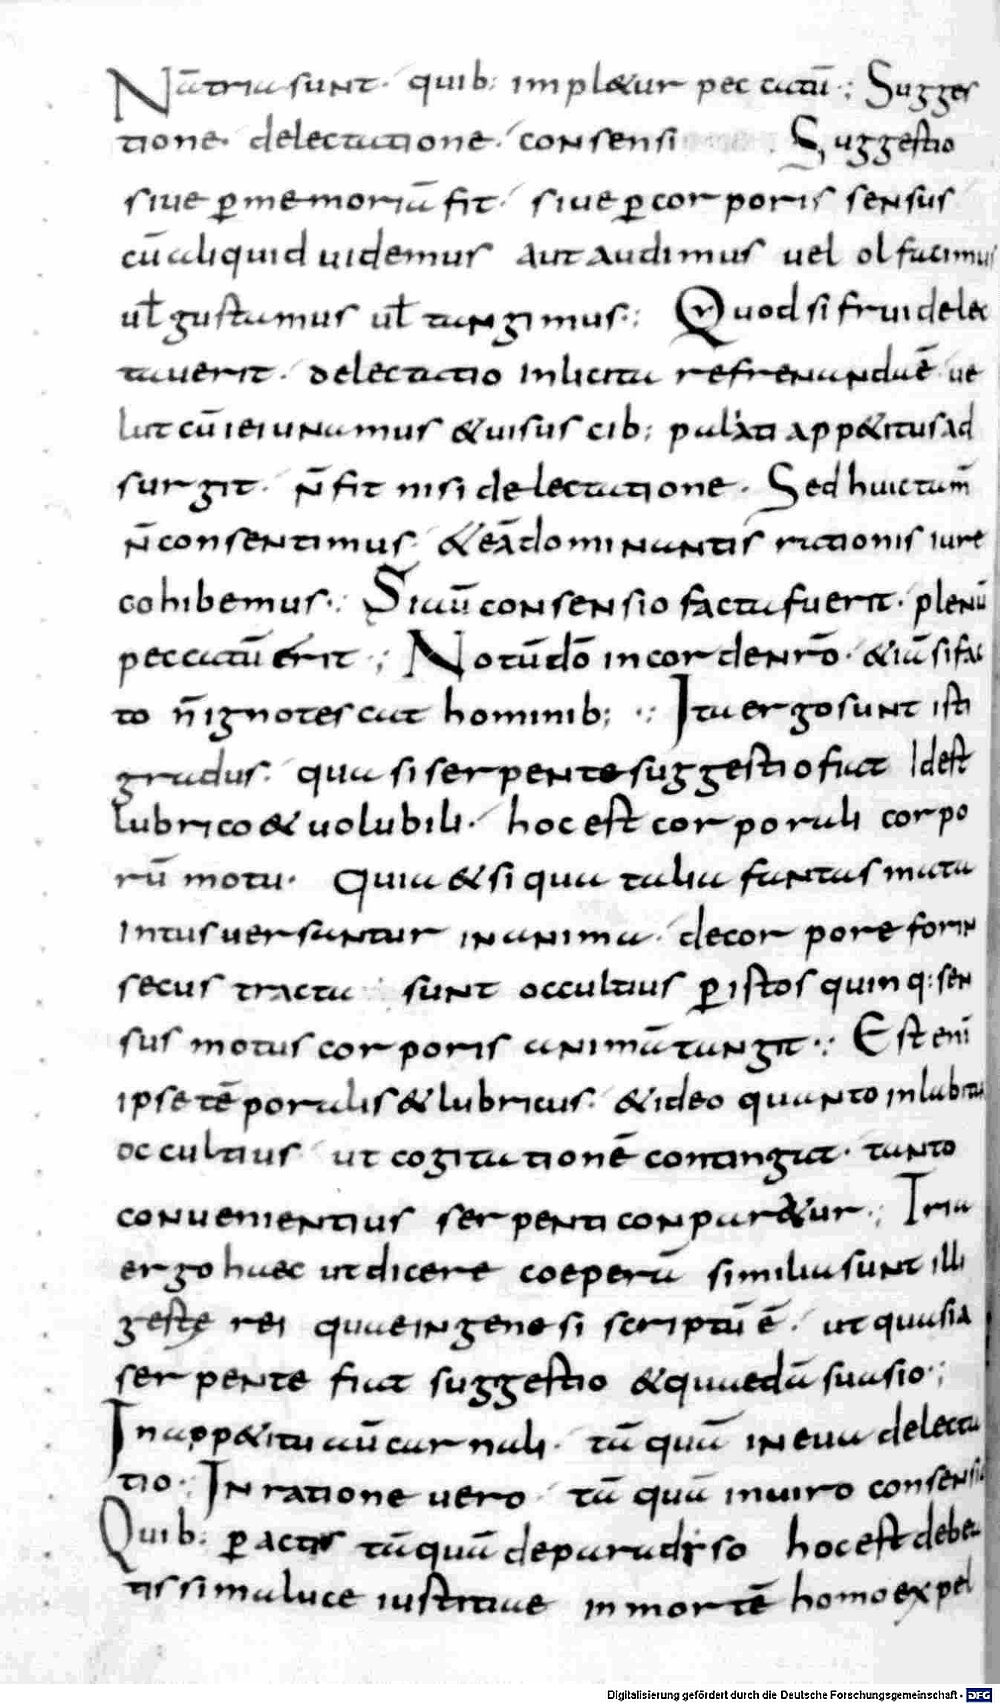 Nā tria sunt · quib: impl&ur peccatū ·; Sugges
tione · delectatione · consensi Suggestio
siue p̲ memoriā fit · siue p̲ corporis sensus
cū aliquid uidemus aut audimus uel olfacimus
ul̄ gustamus ul̄ tangimus ·: Quod si frui delec
tauerit · delectatio inlicita refrenanda ē ue
lut cū ieiunamus & uisus cib: palati app&itus ad
surgit · n̄ fit nisi delectatione · Sed huic tam̄
n̄ consentimus · & eā dominantis rationis iure
cohibemus ·: Si aū consensio facta fuerit · plenū
peccatū erit ·; Notū dō in corde nr̄o · & iā si fac
to n̄ ignotescat hominib; ·: Ita ergo sunt isti
gradus · qua si serpente suggestio fiat Id est
lubrico & uolubili · hoc est corporali corpo
rū motu · Quia & si qua talia fantasmata
intus uersantur in anima · de corpore forin
secus tracta sunt occultius p̲ istos quinq: sen
sus motus corporis animā tangit ·: Est enī
ipse tēporalis & lubricus · & ideo quanto inlabitur
occultius ut cogitationē contingat · tanto
conuenientius serpenti conpar&ur ·; Tria
ergo haec ut dicere coeperā similia sunt illi
gestę rei quae in genesi scriptū ē · ut quasi a
serpente fiat suggestio & quaedā suasio ·;
In app&itu aū carnali · tā quā in eua delecta
tio ·: In ratione uero · tā quā in uiro consensio
Quib: p̲actis tā quā de paradiso hoc est de bea
tissima luce iustitiae in mortē homo expel
Digitalisierung gefördert durch die Deutsche Forschungsgemeinschaft - DFG